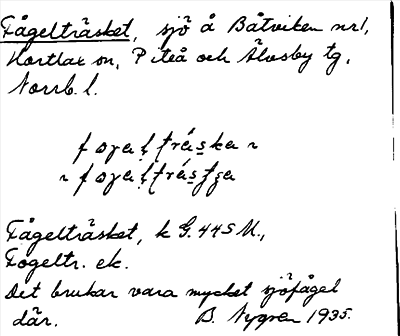 Fågelträsket, sjö å Båtviken nr 1,
Hortlax sn, Piteå och Älvsby tg,
Norrb. l.
Fågelträsket, k G. 445 M.,
Fogeltr. ek.
Det brukar vara mycket sjöfågel
där. B. Nygren 1935.